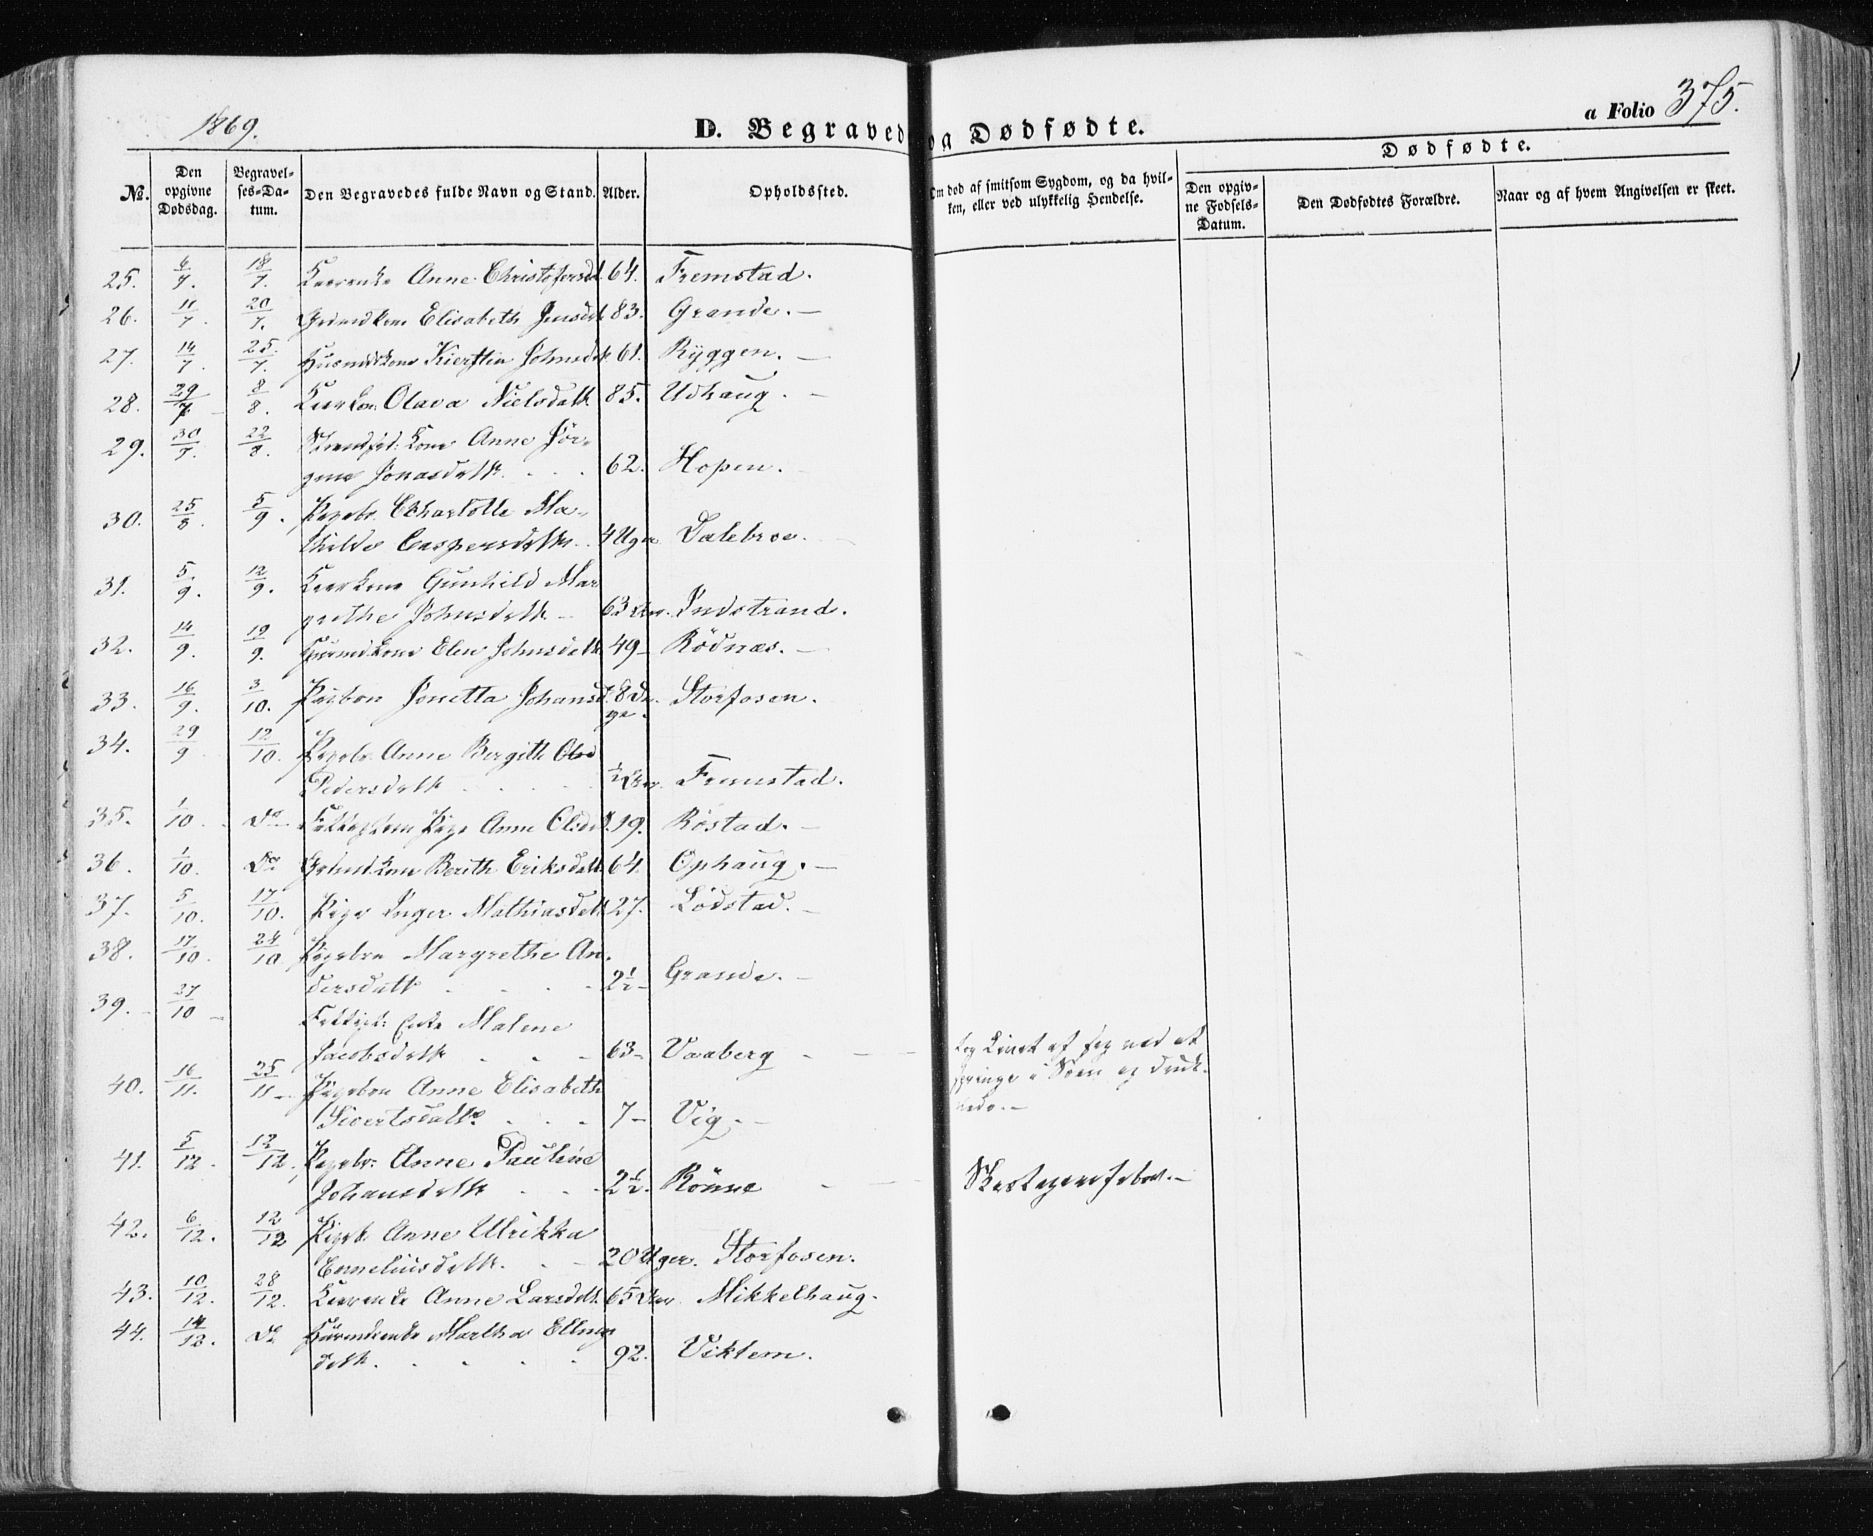 1869.
D. Begravede og Dødfødte.
a Folio 375.
Dødfødte.
No. Den opgivne Dødsdag. Begravelses-Datum. Den Begravedes fulde Navn og Stand. Alder. Opholdssted. Om død af smitsom Sygdom, og da hvilken, eller ved ulykkelig Hendelse. Den opgivne Fødsels-Datum. Den Dødfødtes Forældre. Naar og af hvem Angivelsen er skeet.
25. 6/7. 18/7. Anne Christofersd. 64. Fremstad.
26. 11/7. 20/7. Elisabeth Jensdtr 83. Grande.
27. 14/7. 25/7. Kierstin Johnsdt. 61. Ryggen.
28. 29/7 8/8. Olava Nielsdatt. 85. Udhaug.
29. 30/7. 22/8. Kone Anne Jør-
gine Jonasdatt. 62. Hopen.
30. 25/8. 5/9. Pigeb. Charlotte Ma-
thilde Caspersdatter. 4 Uger Dalebroe.
31. 5/9. 12/9. Gunhild Mar
grethe Johnsdatt. 63 Aar. Indstrand.
32. 14/9. 19/9. Elen Johnsdatt. 49 Rödnæs.
33. 16/9. 3/10. Pigebn Jonetta Johansd. 8 Da-
ge. Storfosen.
34. 29/9 12/10. Pigeb. Anne Bergith
Pedersdatt. 1/2 Aar. Fremstad.
35. 1/10. Do Pige Anne Olsdt. 19. Röstad.
36. 1/10. Do Berith Eriksdatt. 64. Ophaug.
37. 5/10. 17/10. Pige Inger Mathiasdatt. 27. Lödstad.
38. 17/10. 24/10. Pigebn Margrethe An-
dersdatt 2 1/2 Grande.
39. 27/10 Enke Malene
Jacobsdatt 63 Vaaberg tog Livet af sig ved at
springe i Søen og druk-
nede.
40. 16/11. 25/11. Pigebn Anne Elisabeth
Sivertsdatt. 7 Vig.
41. 5/12. 12/12. Pigebn. Anne Pauline
Johansdatt 2 1/2. Rönne
42. 6/12. 12/12 Pigeb. Anne Ulrikka
Corneliusdatt. 20 Uger. Storfosen.
43. 10/12. 28/12. Anne Larsdatt. 65 Aar Mikkelhaug.
44. 14/12. Do Martha
datt. 92. Viklem.